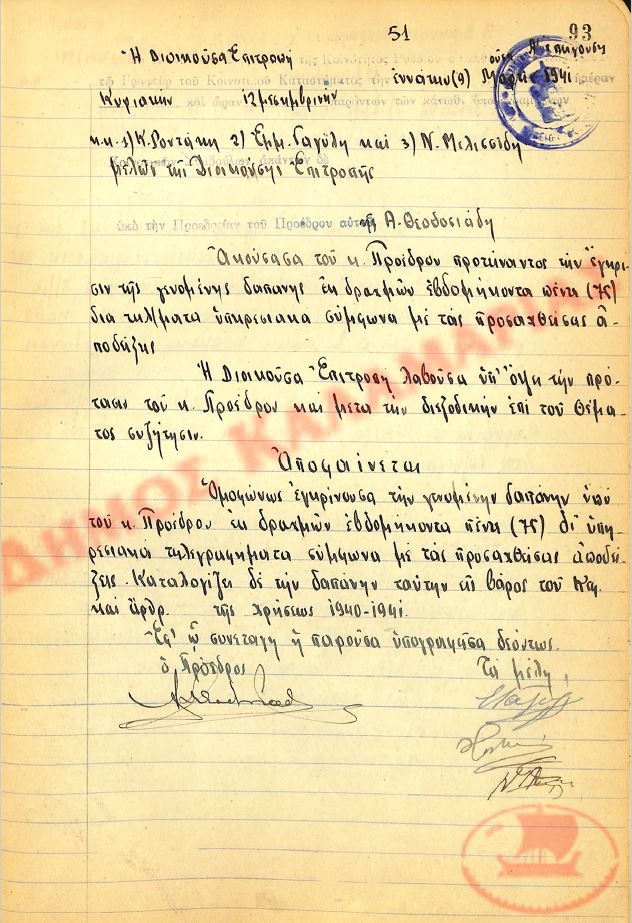 51
93
Ἡ Διοικοῦσα Ἐπιτροπή τῆς Κοινότητος
τῷ Γραφείῳ τοῦ Κοινοτικοῦ Καταστήματος τὴν ἐννάτην (9) Μαρτ. 1941 ἡμέραν
Κυριακὴν καὶ ὥραν 12 μεσημβρινὴν παρόντων τῶν κάτωθι
κ.κ. 1) Κ. Ροντάκη 2) Ἐμμ. Γαγύλη καὶ 3) Ν. Μελισσίδη
μελῶν τῆς Διοικούσης Ἐπιτροπῆς
ὑπὸ τὴν Προεδρίαν τοῦ Προέδρου αὐτῆς Α. Θεοδοσιάδη
Ἀκούσασα τοῦ κ. Προέδρου προτείναντος τὴν ἔγκρι
σιν τῆς γενομένης δαπάνης ἐκ δραχμῶν ἑβδομήκοντα πέντε (75)
δια τηλ/ματα ὑπηρεσιακα σύμφωνα μὲ τὰς προσαχθείσας ἀ
ποδείξεις
Ἡ Διοικοῦσα Ἐπιτροπη λαβοῦσα ὑπ' ὄψει τὴν πρό
τασιν τοῦ κ. Προέδρου καὶ μετα τὴν διεξοδικὴν ἐπι τοῦ θέμα
τος συζήτησιν.
Ἀποφαίνεται
Ὁμοφώνως ἐγκρίνουσα τὴν γενομένην δαπάνην ὑπὸ
τοῦ κ. Προέδρου ἐκ δραχμῶν ἑβδομήκοντα πέντε (75) δι' ὑπη
ρεσιακα τηλεγραφήματα σύμφωνα μὲ τὰς προσαχθείσας ἀποδεί
ξεις. Καταλογίζει δὲ τὴν δαπάνην ταύτην εἰς βάρος τοῦ Κεφ.
καὶ ἄρθρ. τῆς χρήσεως 1940-1941.
Ἐφ' ᾧ συνεταγη ἡ παροῦσα ὑπογραφεῖσα δεόντως.
ὁ Πρόεδρος
Τα μέλη
ΔΗΜΟΣ ΚΑΛΑΜΑΡΙΑΣ